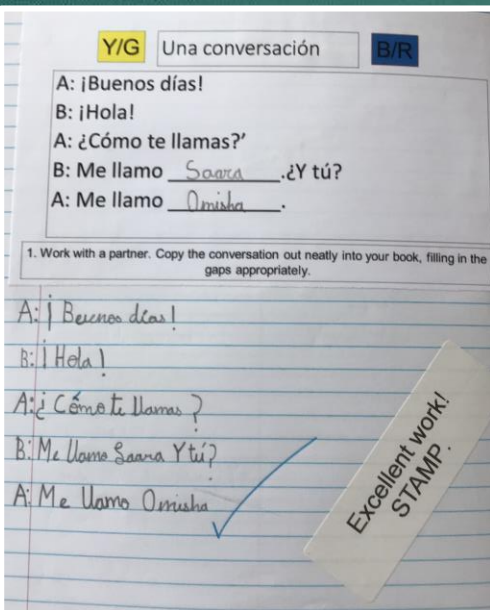 Y/G Una conversación B/R
A: ¡Buenos días!
B: ¡Hola!
A: ¿Cómo te llamas?’
B: Me llamo Saara.¿Y tú?
A: Me llamo Omisha.
1. Work with a partner. Copy the conversation out neatly into your book, filling in the
gaps appropriately.
A: ¡Buenos días!
B: ¡Hola!
A: ¿Cómo te llamas?
B: Me llamo Saara Y tú?
A: Me llamo Omisha
Excellent work!
STAMP.